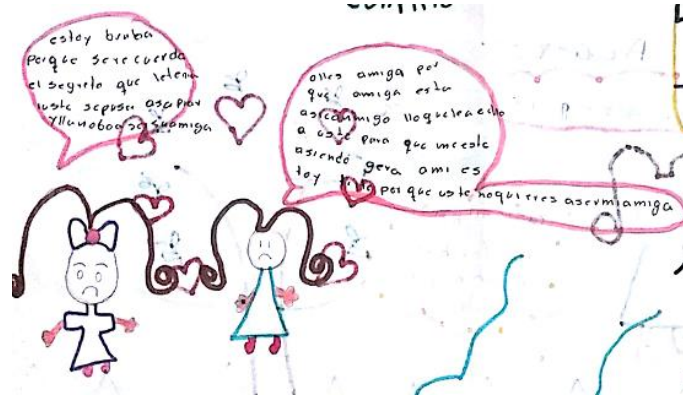 estoy braba
porque se recuerda
el segreto que letenia
uste sepuso asapiar
yllanoboaserSuamiga
olles amiga por
que amiga esta
asiconmigo lloqueleaecho
a uste para que meeste
asiendo gera ami es
toy por que uste noquieres asermiamiga